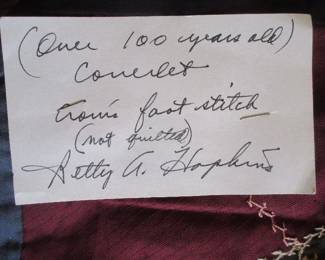 (Over 100 years old)
Coverlet
Crow's foot stitch
(not quilted)
Betty A. Hopkins